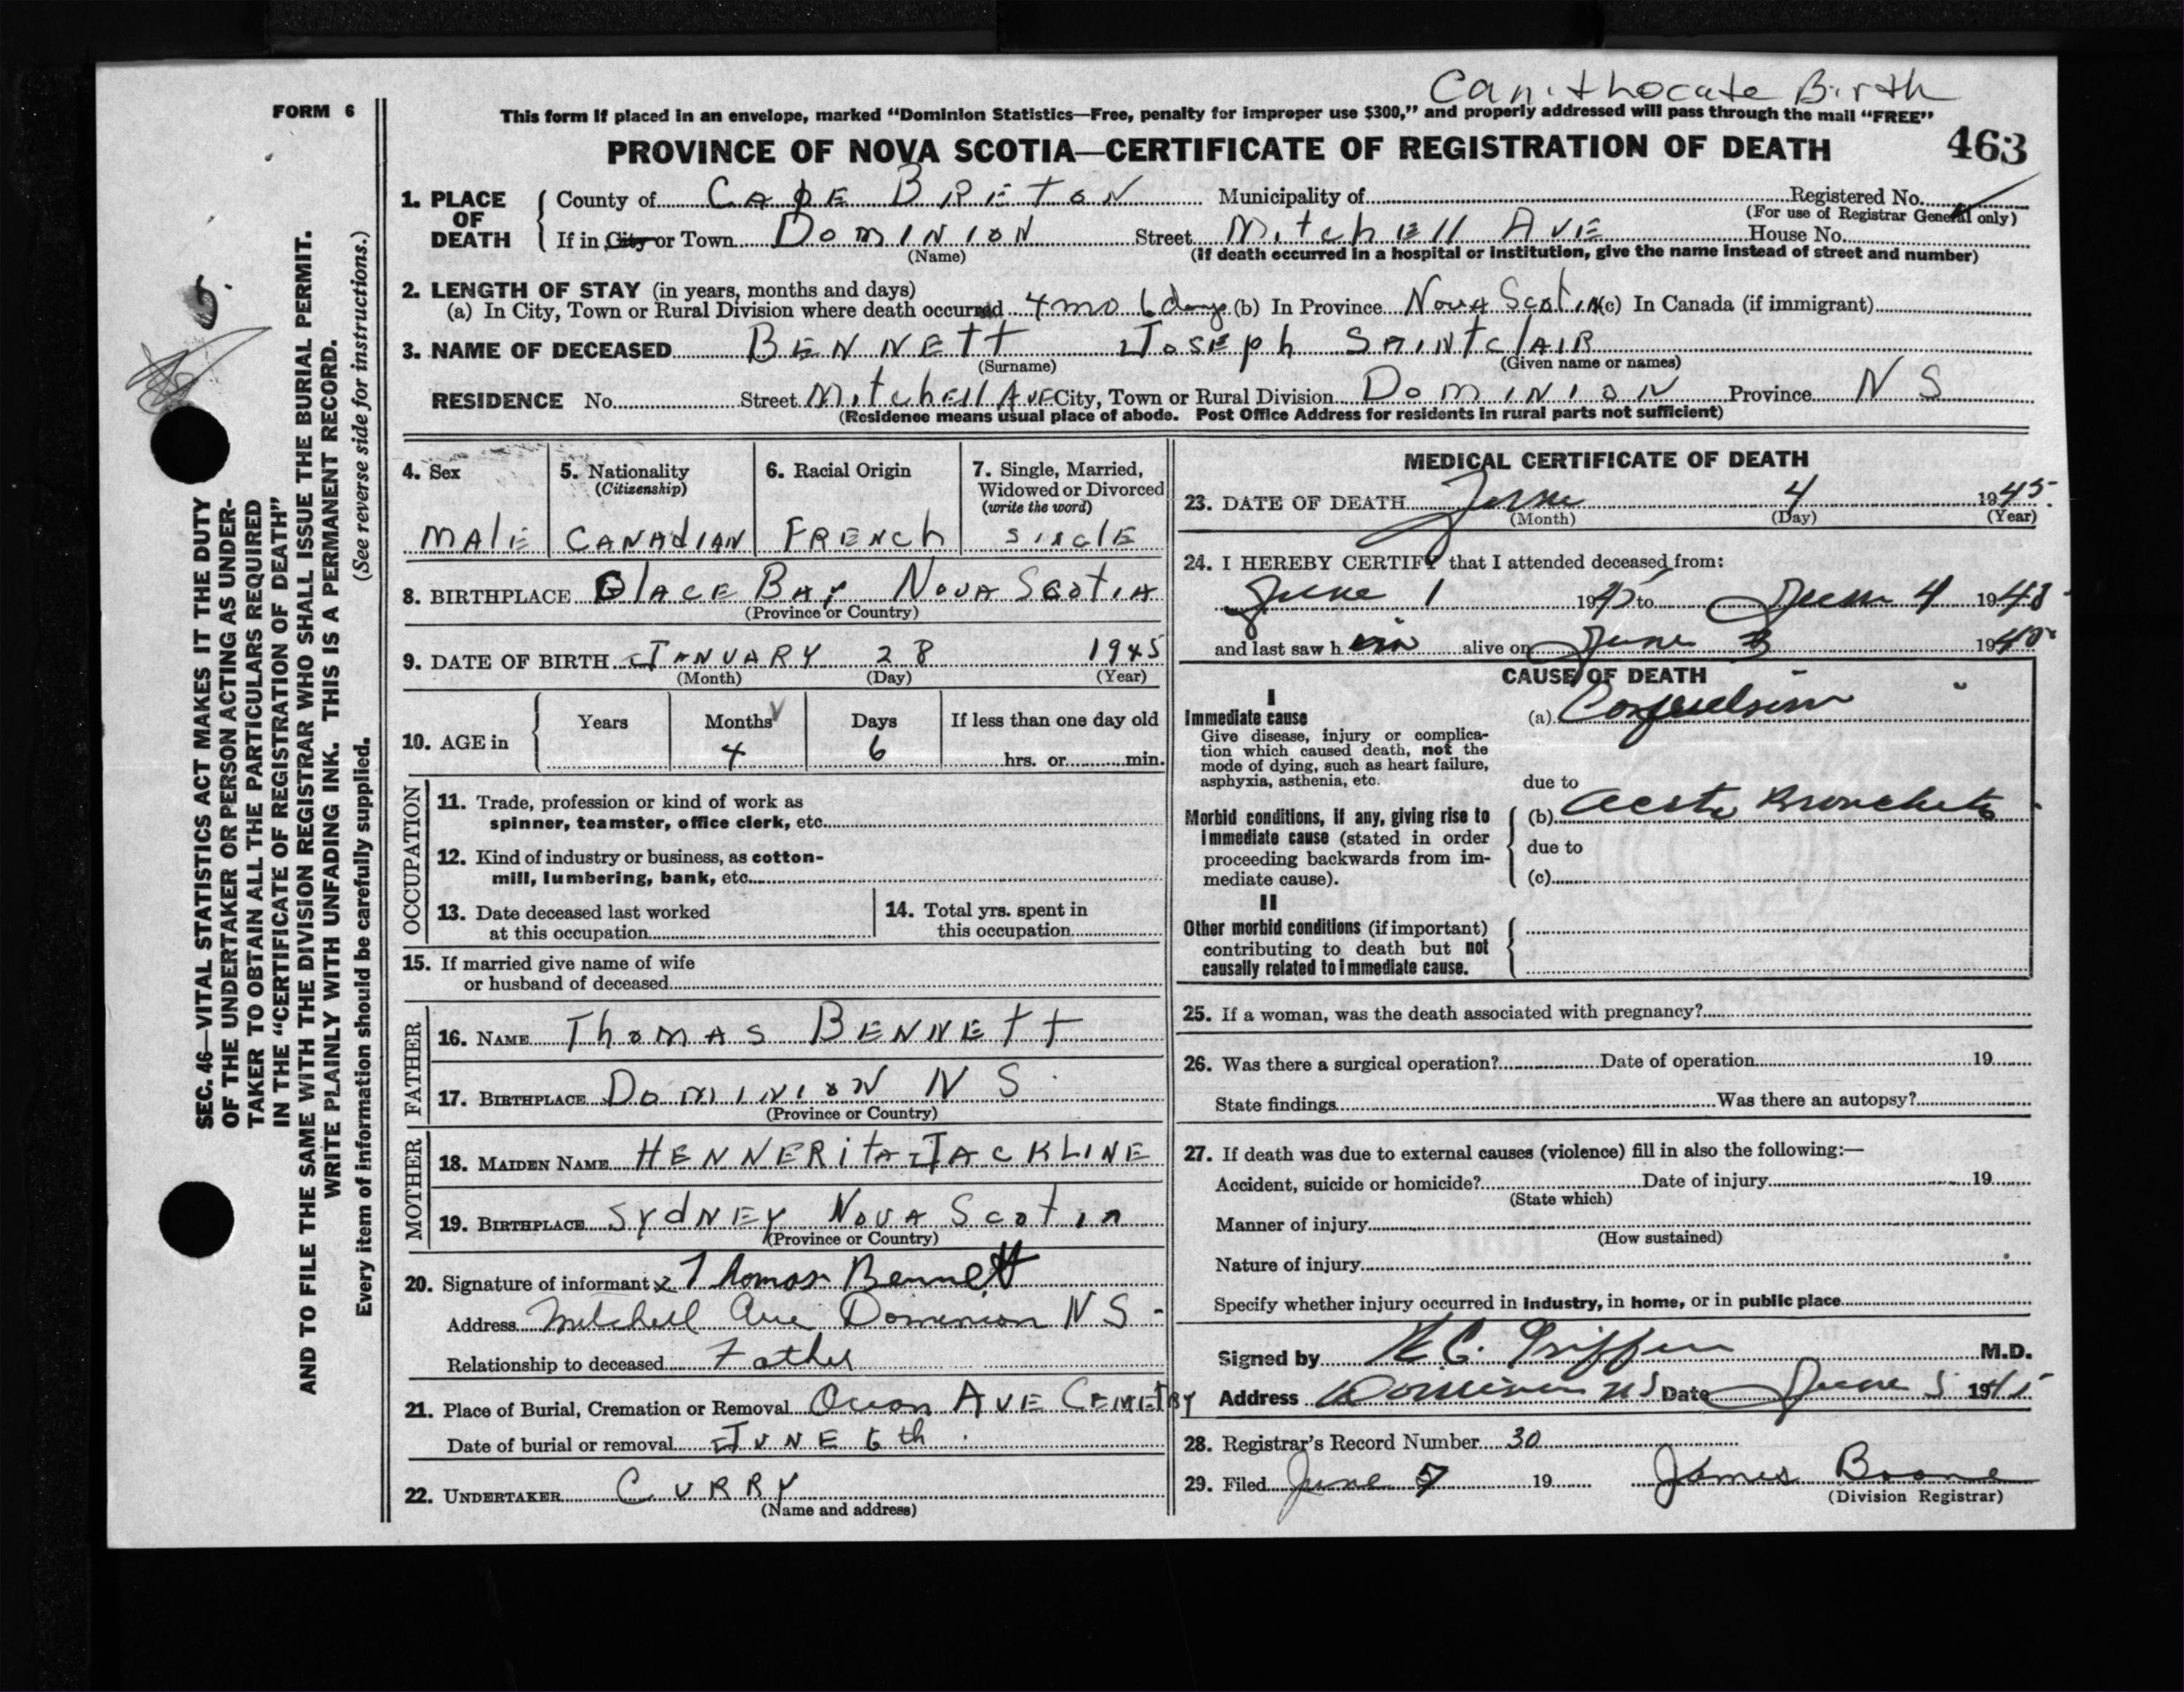 Can't Locate Birth
FORM 6
This form if placed in an envelope, marked “Dominion Statistics—Free, penalty for improper use $300,” and properly addressed will pass through the mail “FREE”
PROVINCE OF NOVA SCOTIA—CERTIFICATE OF REGISTRATION OF DEATH 463
1. PLACE OF DEATH
County of CAPE BRETON Municipality of Registered No.
(For use of Registrar General only)
If in City or Town DOMINION Street Mitchell AVE House No.
(Name) (If death occurred in a hospital or institution, give the name instead of street and number)
2. LENGTH OF STAY (in years, months and days)
(a) In City, Town or Rural Division where death occurred 4 mo 6 days (b) In Province Nova Scotia (c) In Canada (if immigrant)
3. NAME OF DECEASED BENNETT Joseph SAINTCLAIR
(Surname) (Given name or names)
RESIDENCE No. Street Mitchell AVE City, Town or Rural Division DOMINION Province N S
(Residence means usual place of abode. Post Office Address for residents in rural parts not sufficient)
4. Sex
MALE
5. Nationality
(Citizenship)
CANADIAN
6. Racial Origin
FRENCH
7. Single, Married,
Widowed or Divorced
(write the word)
SINGLE
8. BIRTHPLACE GLACE BAY NOVA SCOTIA
(Province or Country)
9. DATE OF BIRTH JANUARY 28 1945
(Month) (Day) (Year)
10. AGE in
Years Months Days If less than one day old
4 6 hrs. or min.
OCCUPATION
11. Trade, profession or kind of work as
spinner, teamster, office clerk, etc.
12. Kind of industry or business, as cotton-
mill, lumbering, bank, etc.
13. Date deceased last worked
at this occupation
14. Total yrs. spent in
this occupation
15. If married give name of wife
or husband of deceased
FATHER
16. NAME Thomas BENNETT
17. BIRTHPLACE DOMINION N S
(Province or Country)
MOTHER
18. MAIDEN NAME HENNERITA JACKLINE
19. BIRTHPLACE SYDNEY NOVA SCOTIA
(Province or Country)
20. Signature of informant x Thomas Bennett
Address Mitchell Ave Dominion N S
Relationship to deceased Father
21. Place of Burial, Cremation or Removal Ocean AVE CEMETRY
Date of burial or removal JUNE 6th
22. UNDERTAKER CURRY
(Name and address)
MEDICAL CERTIFICATE OF DEATH
23. DATE OF DEATH June 4 1945
(Month) (Day) (Year)
24. I HEREBY CERTIFY that I attended deceased from:
June 1 1945 to June 4 1945
and last saw him alive on June 3 1945
CAUSE OF DEATH
I
Immediate cause
Give disease, injury or complica-
tion which caused death, not the
mode of dying, such as heart failure,
asphyxia, asthenia, etc.
(a) Convulsion
due to
Morbid conditions, if any, giving rise to
immediate cause (stated in order
proceeding backwards from im-
mediate cause).
(b) Acute Bronchitis
due to
(c)
II
Other morbid conditions (if important)
contributing to death but not
causally related to immediate cause.
25. If a woman, was the death associated with pregnancy?
26. Was there a surgical operation? Date of operation 19
State findings Was there an autopsy?
27. If death was due to external causes (violence) fill in also the following:—
Accident, suicide or homicide? Date of injury 19
(State which)
Manner of injury
(How sustained)
Nature of injury
Specify whether injury occurred in industry, in home, or in public place
Signed by Griffin M.D.
Address Dominion NS Date June 5 1945
28. Registrar's Record Number 30
29. Filed June 7 19 James Boone
(Division Registrar)
SEC. 46—VITAL STATISTICS ACT MAKES IT THE DUTY
OF THE UNDERTAKER OR PERSON ACTING AS UNDER-
TAKER TO OBTAIN ALL THE PARTICULARS REQUIRED
IN THE “CERTIFICATE OF REGISTRATION OF DEATH”
AND TO FILE THE SAME WITH THE DIVISION REGISTRAR WHO SHALL ISSUE THE BURIAL PERMIT.
WRITE PLAINLY WITH UNFADING INK. THIS IS A PERMANENT RECORD.
Every item of information should be carefully supplied. (See reverse side for instructions.)